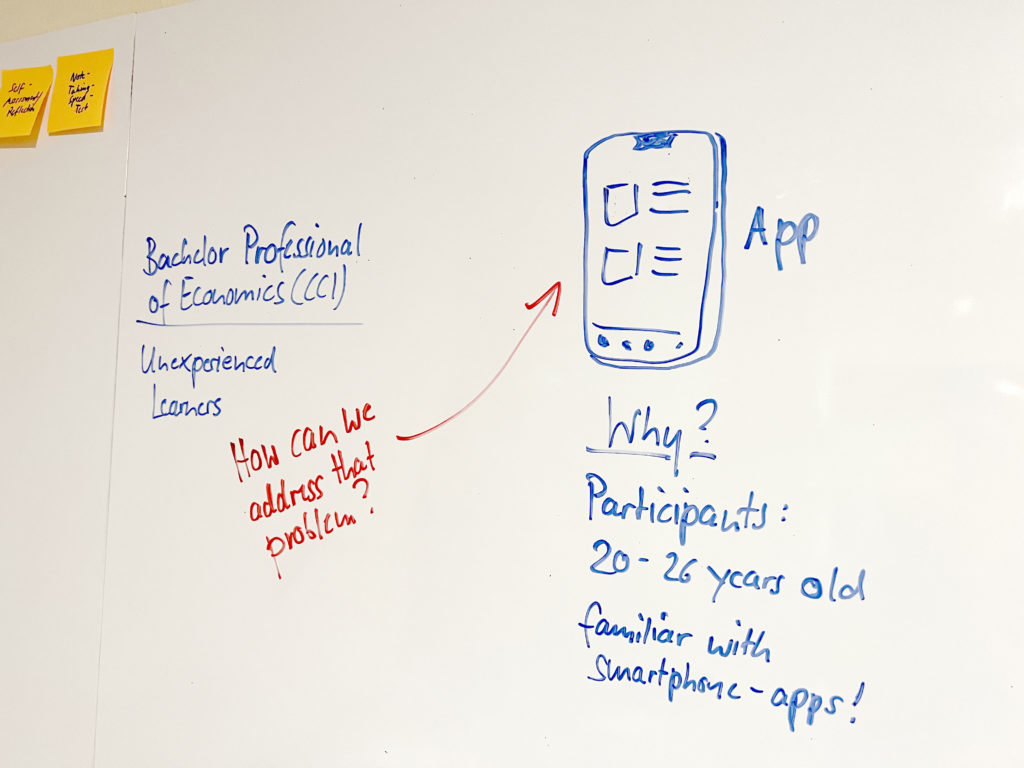 Self-
Assessment/
Reflection
Note-
Taking-
Speed-
Test
Bachelor Professional
of Economics (CCI)
Unexperienced
Learners
How can we
address that
problem?
App
Why?
Participants:
20-26 years old
familiar with
smartphone-apps!